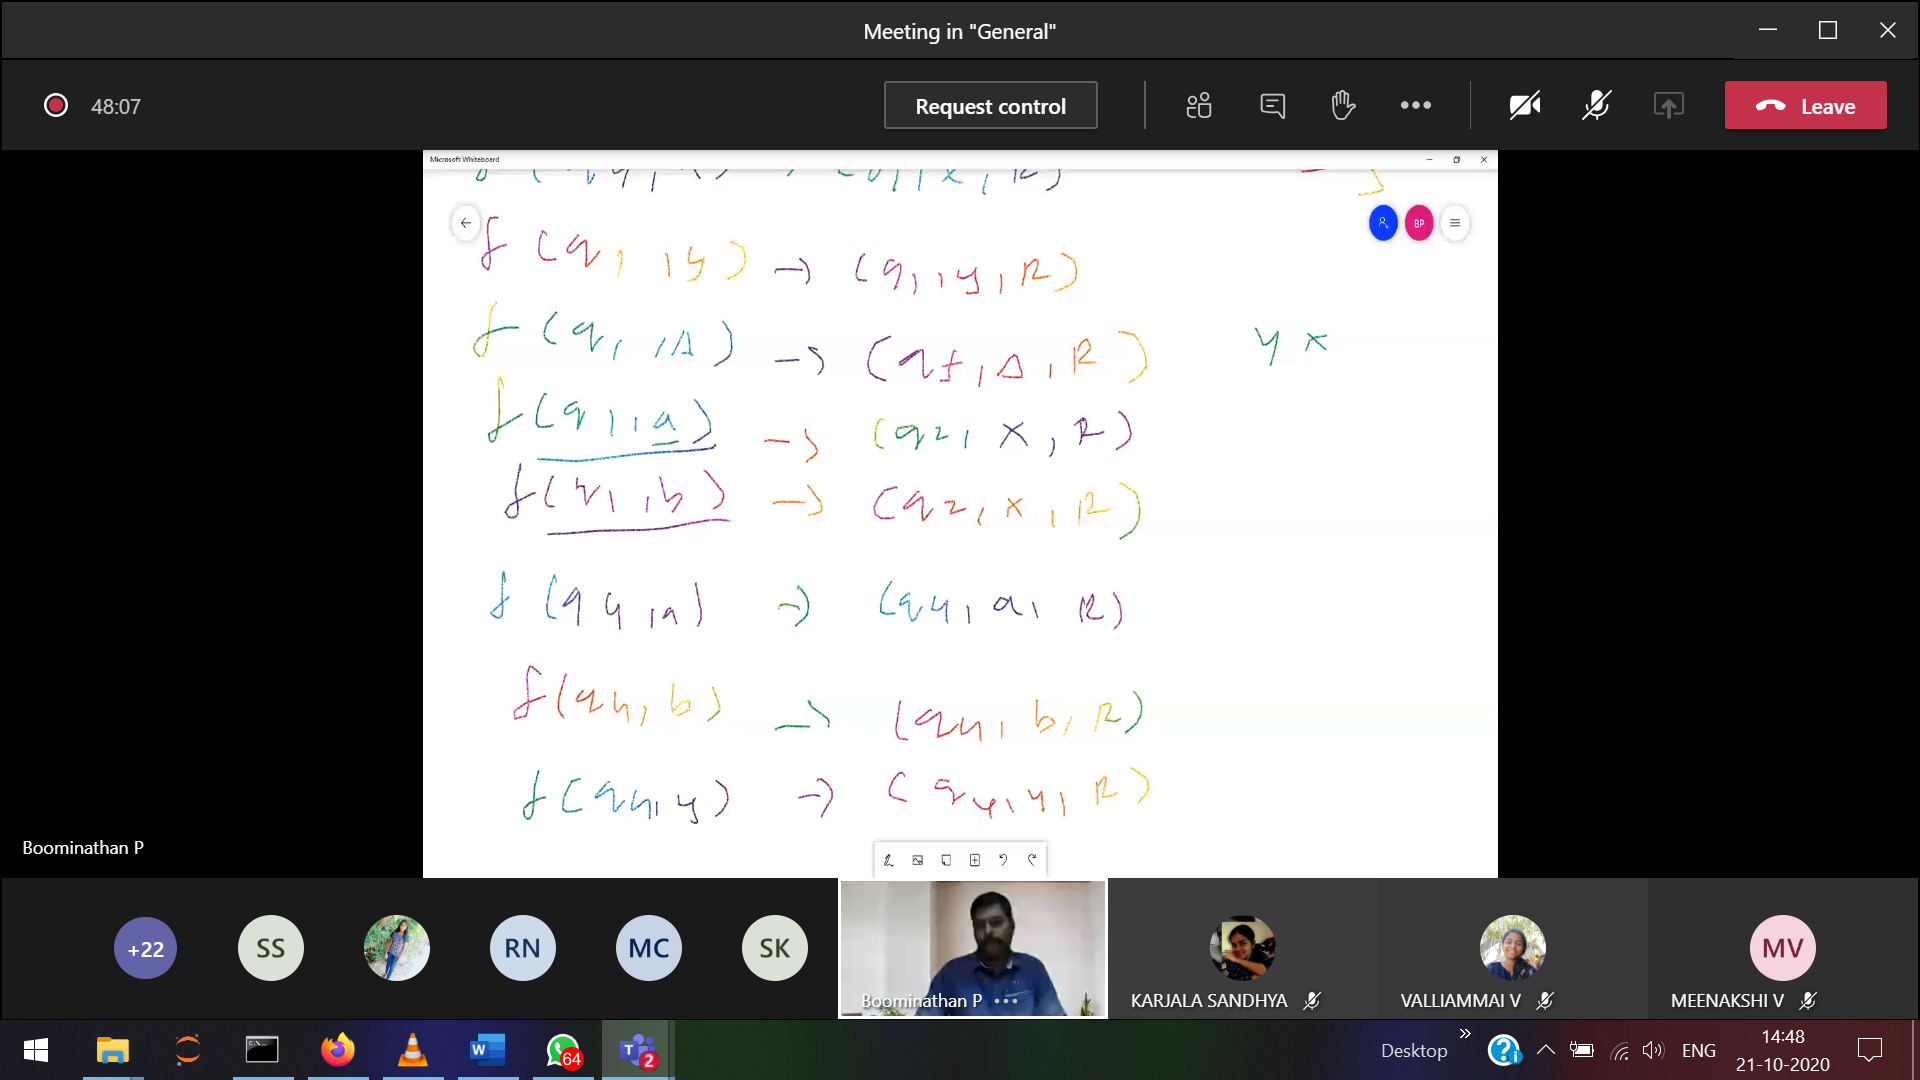 Meeting in "General"
48:07
Request control
Leave
Microsoft Whiteboard
BP
f (q1, y) → (q1, y, R)
f (q1, Δ) → (qf, Δ, R)
y x
f (q1, a) → (q2, x, R)
f (q1, b) → (q2, x, R)
f (q4, a) → (q4, a, R)
f (q4, b) → (q4, b, R)
f (q4, y) → (q4, y, R)
Boominathan P
+22
SS
RN
MC
SK
Boominathan P
KARJALA SANDHYA
VALLIAMMAI V
MV
MEENAKSHI V
64
2
Desktop
ENG
14:48
21-10-2020